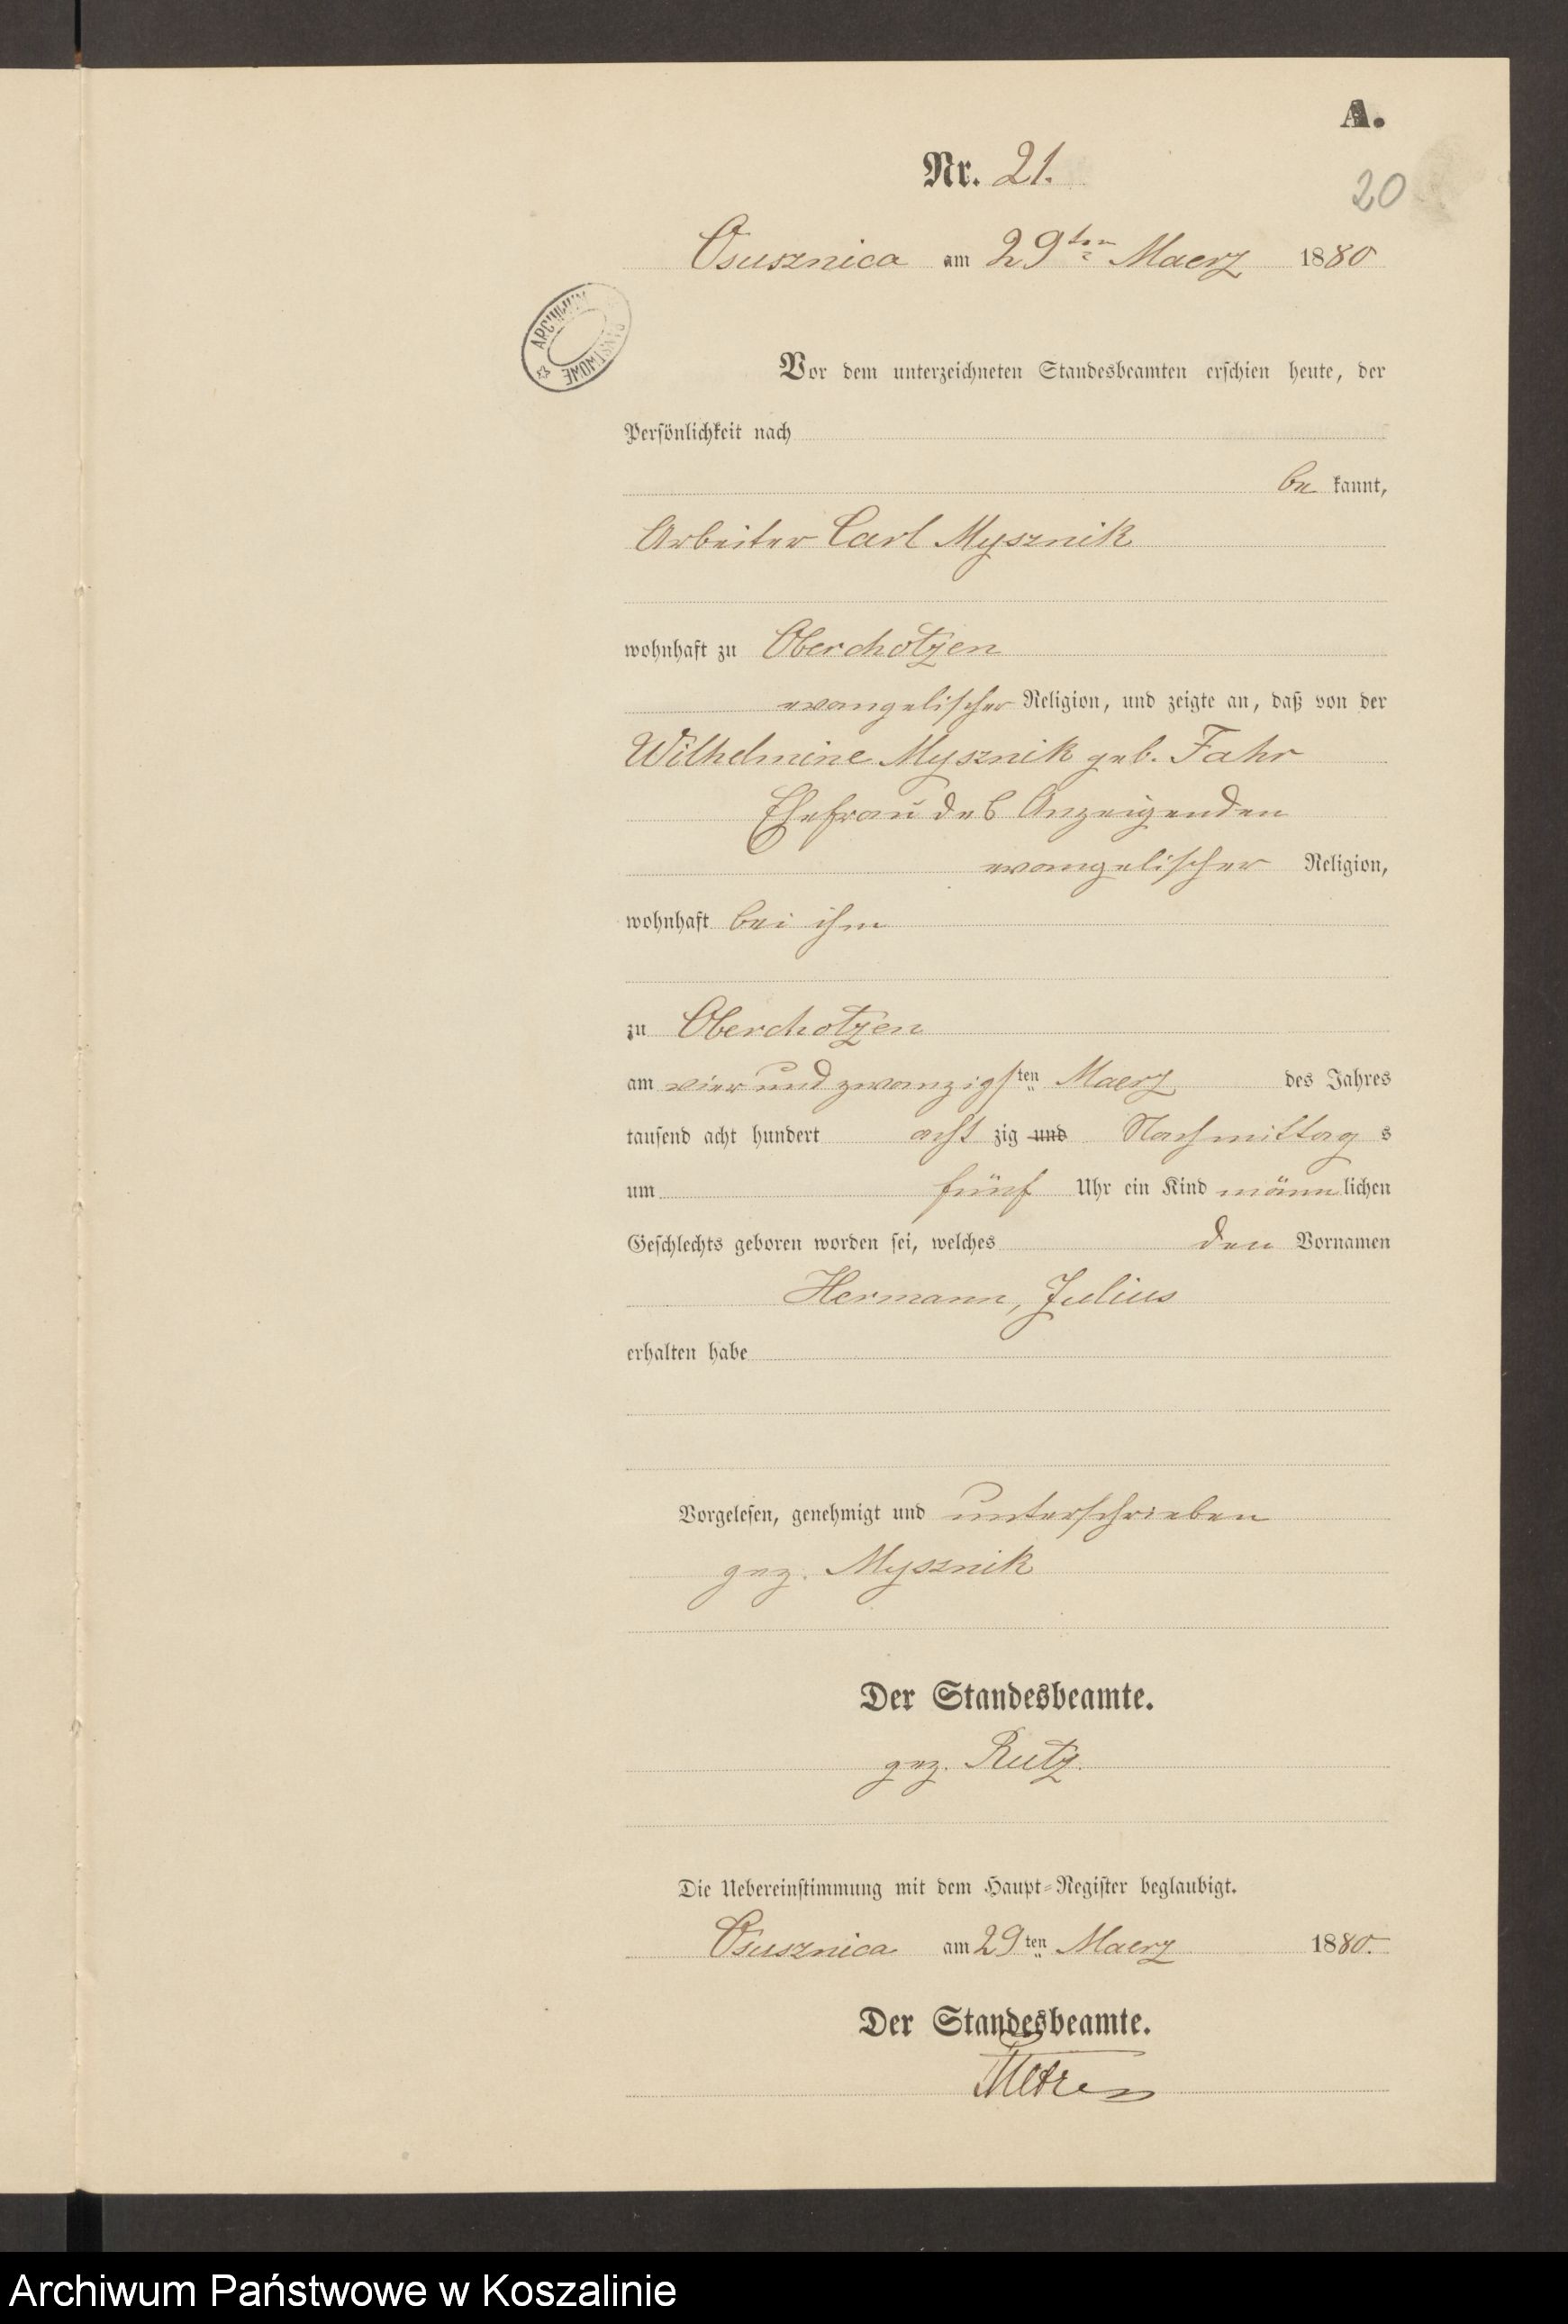 A.
Nr. 21.
20
Osusznica am 29ten Maerz 1880
ARCHIWUM PAŃSTWOWE
Vor dem unterzeichneten Standesbeamten erschien heute, der
Persönlichkeit nach
be kannt,
Arbeiter Carl Mysznik
wohnhaft zu Oberchotzen
evangelischer Religion, und zeigte an, daß von der
Wilhelmine Mysznik geb. Fahr
Ehefrau des Anzeigenden
evangelischer Religion,
wohnhaft bei ihm
zu Oberchotzen
am vier und zwanzigsten Maerz des Jahres
tausend acht hundert acht zig und Nachmittag s
um fünf Uhr ein Kind männlichen
Geschlechts geboren worden sei, welches den Vornamen
Hermann, Julius
erhalten habe
Vorgelesen, genehmigt und unterschrieben
gez. Mysznik
Der Standesbeamte.
gez. Rutz.
Die Uebereinstimmung mit dem Haupt-Register beglaubigt.
Osusznica am 29ten Maerz 1880.
Der Standesbeamte.
Archiwum Państwowe w Koszalinie